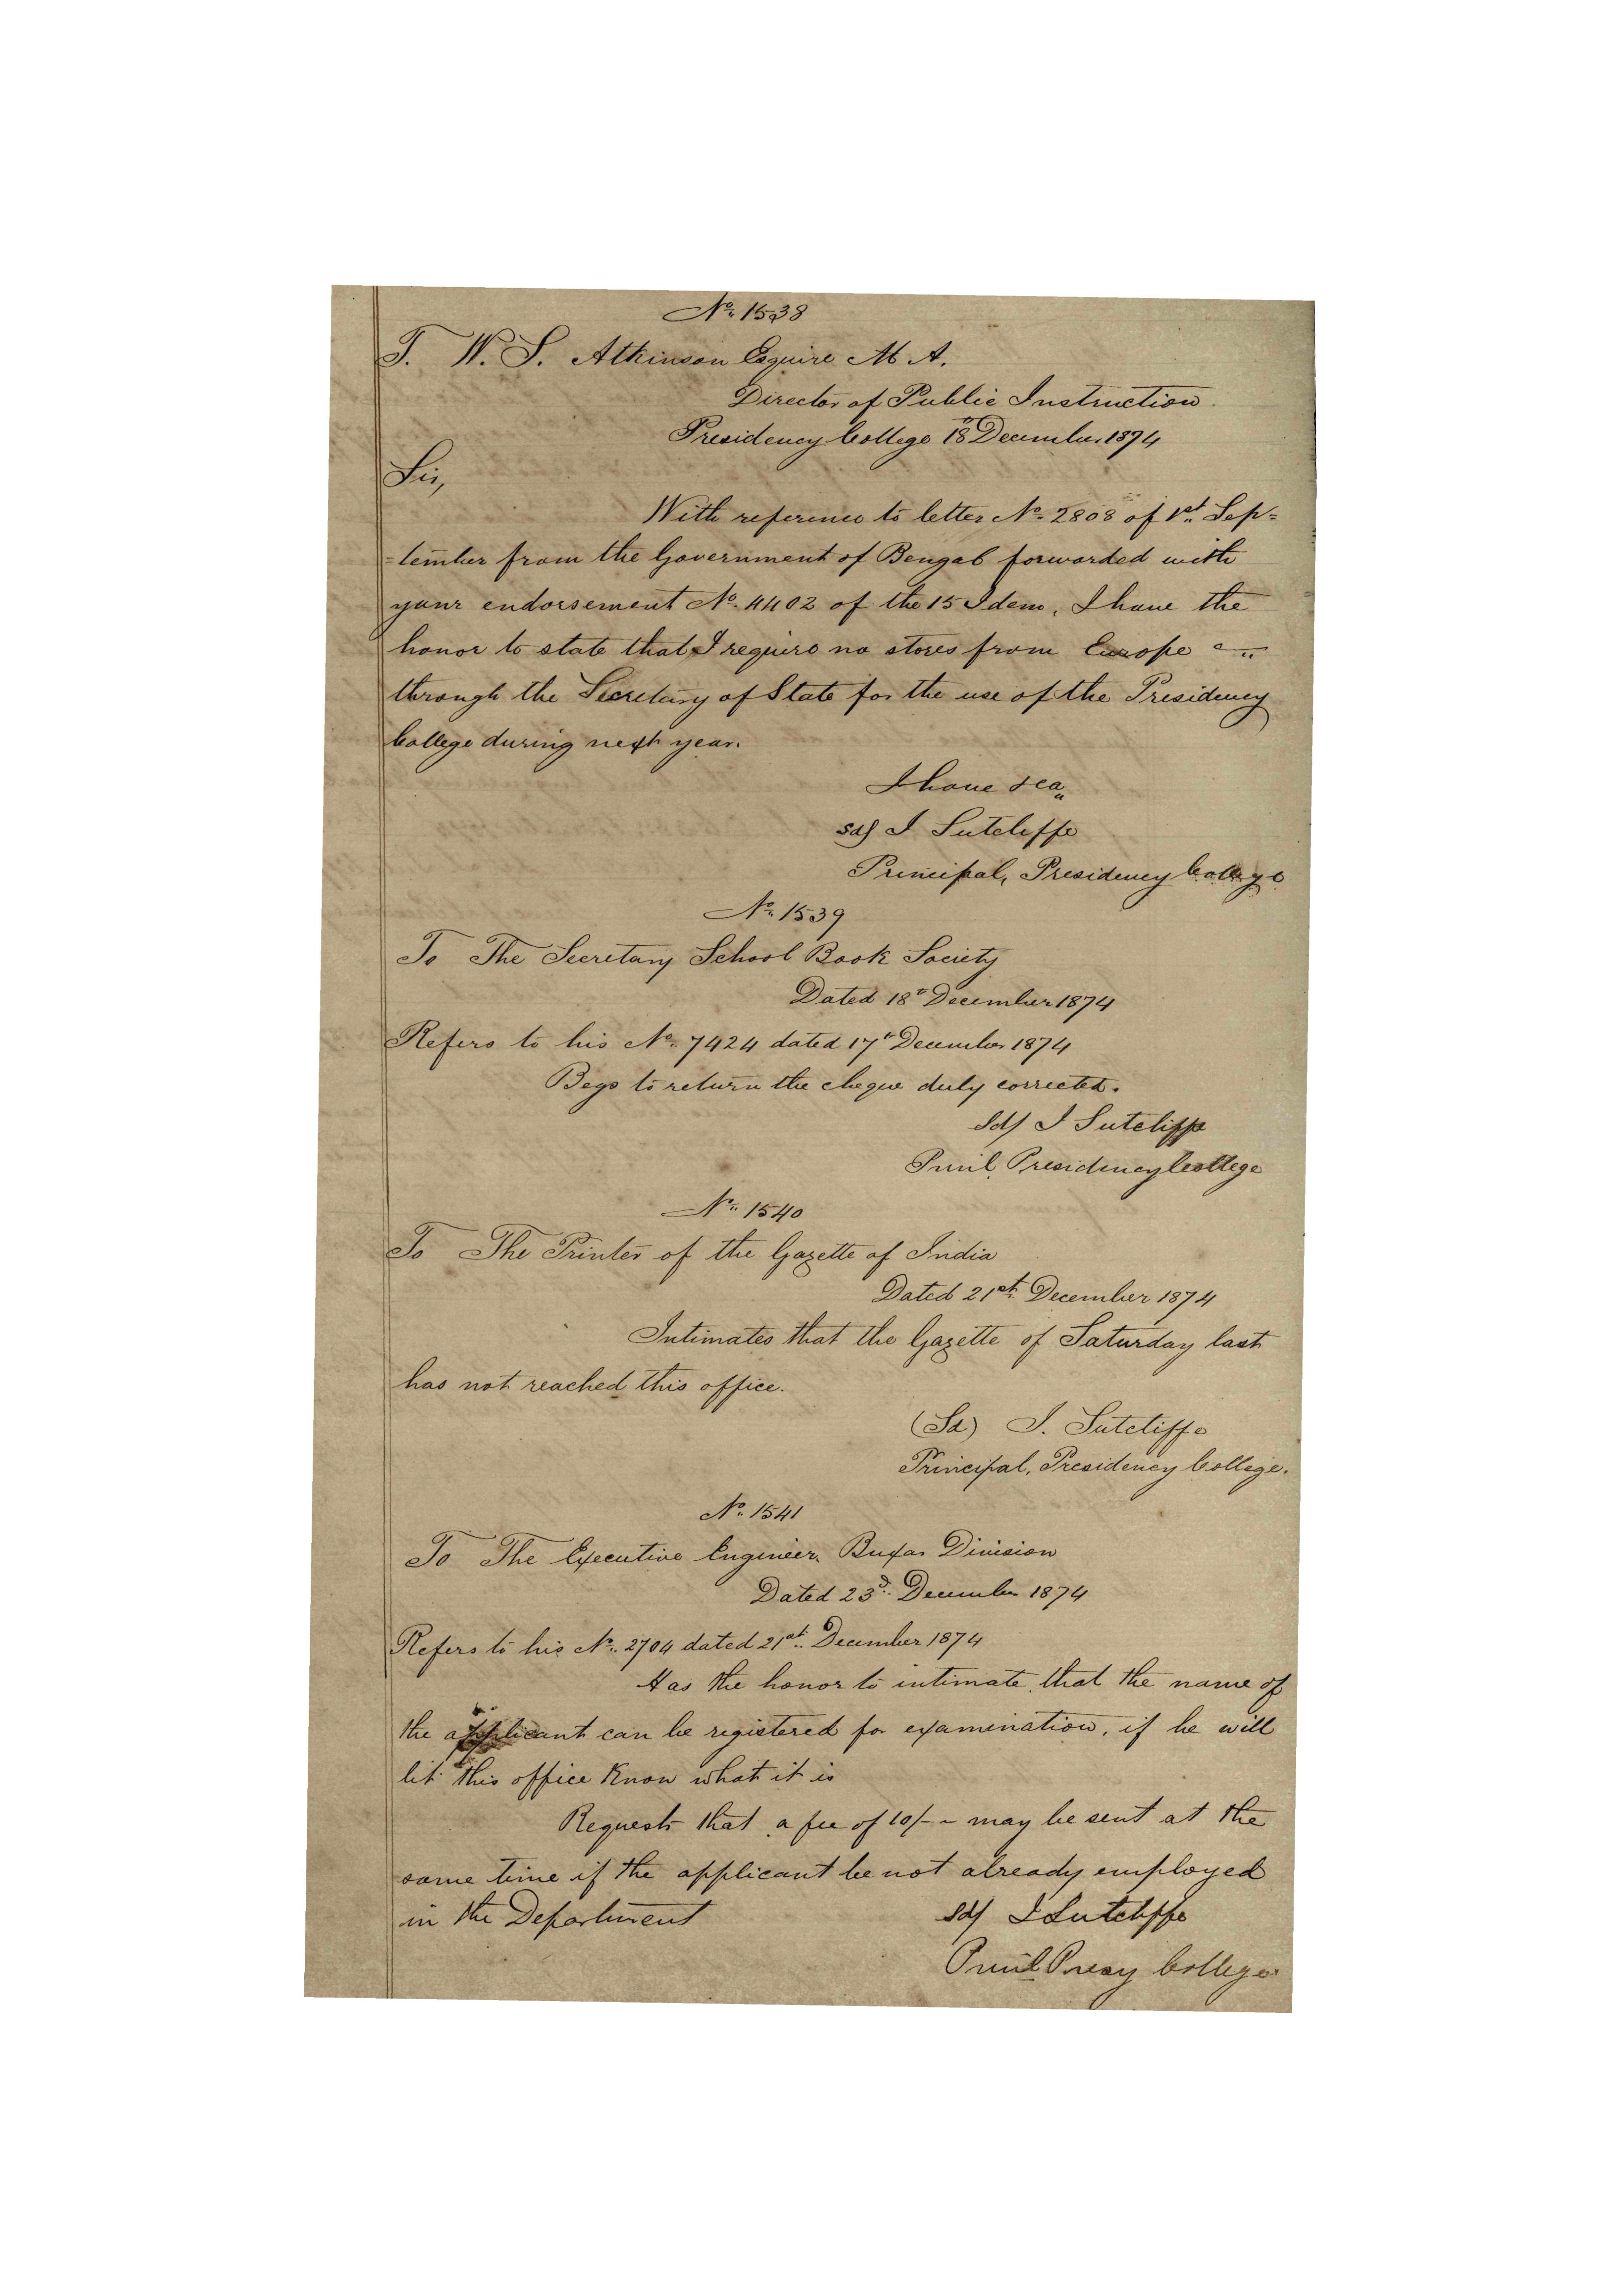 No. 1538
T. W. S. Atkinson Esquire M A.
Director of Public Instruction.
Presidency College 18th December 1874
Sir,
With reference to letter No. 2808 of 1st Sep=
=tember from the Government of Bengal forwarded with
your endorsement No. 4402 of the 15 Idem, I have the
honor to state that I require no stores from Europe
through the Secretary of State for the use of the Presidency
College during next year.
I have &ca
sd/ J Sutcliffe
Principal, Presidency College
No. 1539
To The Secretary School Book Society
Dated 18th December 1874
Refers to his No. 7424 dated 17th December 1874
Begs to return the cheque duly corrected.
Sd/ J Sutcliffe
Prinl. Presidency College
No. 1540
To The Printer of the Gazette of India
Dated 21st December 1874
Intimates that the Gazette of Saturday last
has not reached this office.
(Sd) J. Sutcliffe
Principal, Presidency College.
No. 1541
To The Executive Engineer Buxar Division
Dated 23d December 1874
Refers to his No. 2704 dated 21st December 1874
Has the honor to intimate that the name of
the applicant can be registered for examination, if he will
let this office know what it is
Requests that a fee of 10/- may be sent at the
same time if the applicant be not already employed
in the Department
sd/ J Sutcliffe
Prinl Presy College